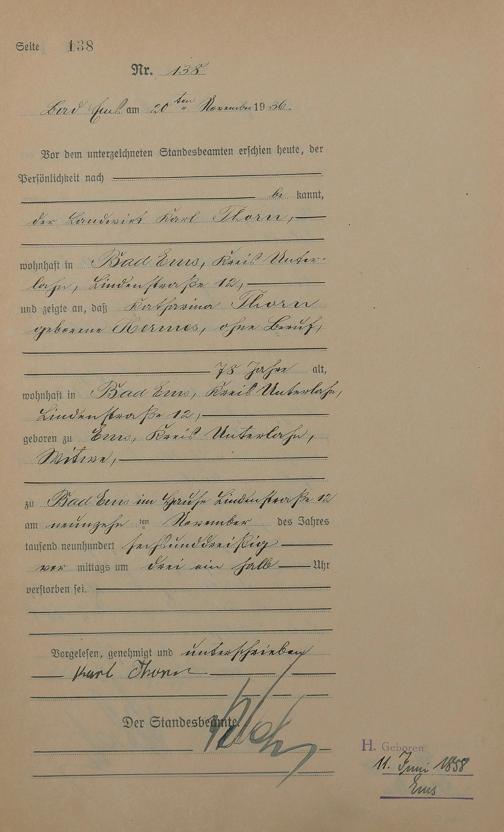 Seite 138
Nr. 138
Bad Ems am 20 ten November 1936.
Vor dem unterzeichneten Standesbeamten erschien heute, der
Persönlichkeit nach
be kannt,
der Landwirt Karl Thorn,
wohnhaft in Bad Ems, Kreis Unter-
lahn, Lindenstraße 12,
und zeigte an, daß Katharina Thorn
geborene Hermes, ohne Beruf,
78 Jahre alt,
wohnhaft in Bad Ems, Kreis Unterlahn,
Lindenstraße 12,
geboren zu Ems, Kreis Unterlahn,
Witwe,
zu Bad Ems im Hause Lindenstraße 12
am neunzehn ten November des Jahres
tausend neunhundert sechsunddreißig
vor mittags um drei ein halb Uhr
verstorben sei.
Vorgelesen, genehmigt und unterschrieben
Karl Thorn
Der Standesbeamte.
H. Geboren
11. Juni 1858
Ems